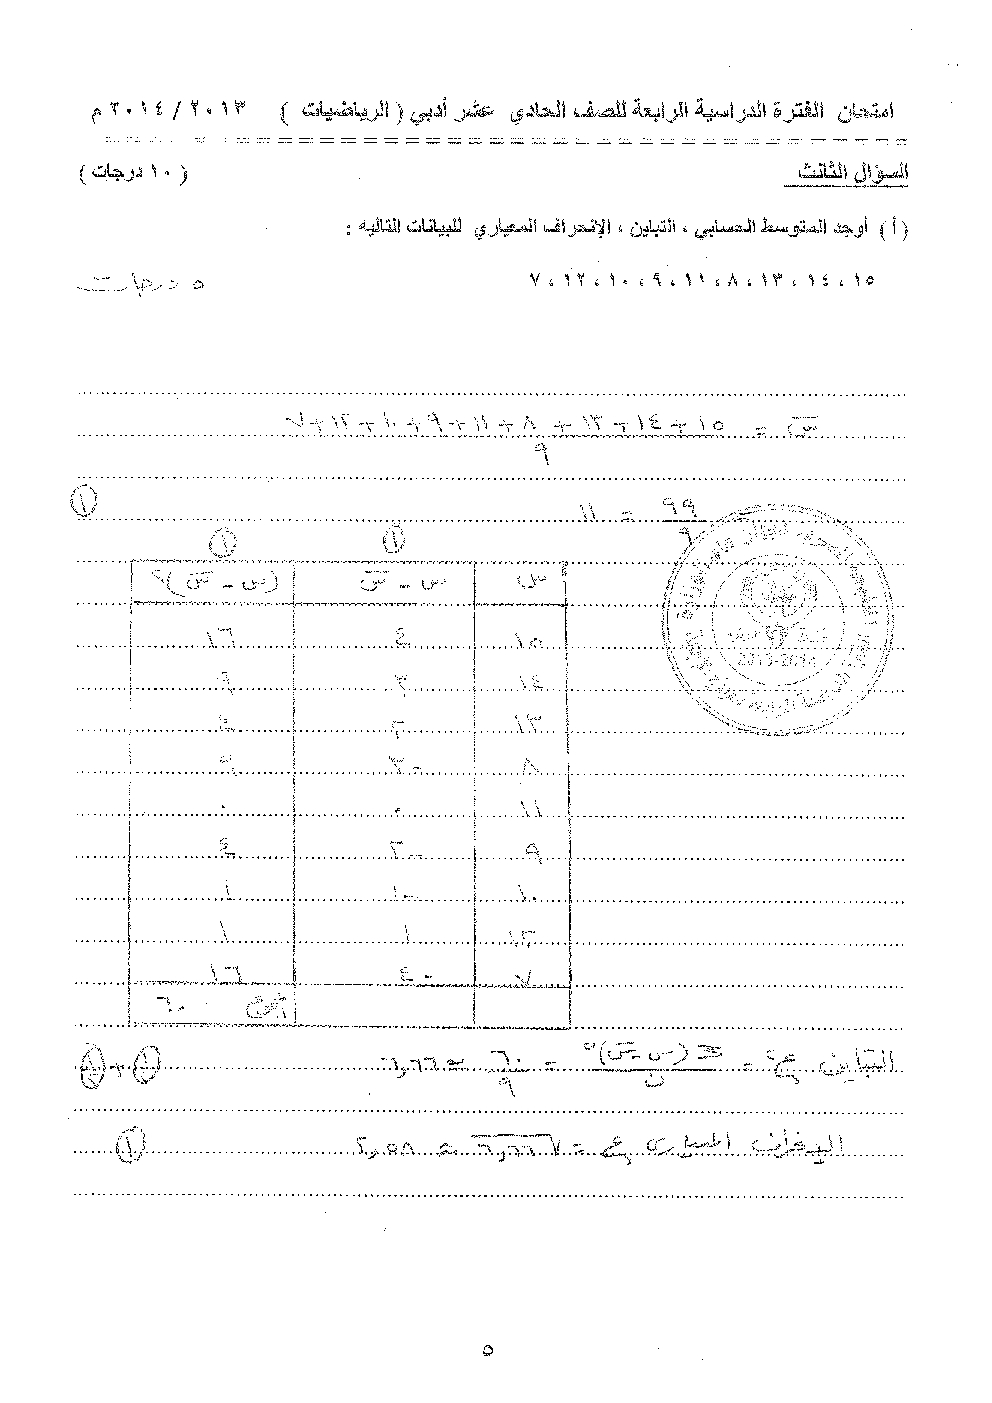 امتحان الفترة الدراسية الرابعة للصف الحادي عشر أدبي ( الرياضيات ) ٢٠١٣ / ٢٠١٤ م
السؤال الثالث ( ١٠ درجات )
( أ ) أوجد المتوسط الحسابي ، التباين ، الإنحراف المعياري للبيانات التاليه :
١٥ ، ١٤ ، ١٣ ، ٨ ، ١١ ، ٩ ، ١٠ ، ١٢ ، ٧
٥ درجات
س̄ = ١٥+١٤+١٣+٨+١١+٩+١٠+١٢+٧
٩
٩٩ = ١١
٩
١
١ ١
س س - س̄ (س - س̄)٢
١٥ ٤ ١٦
١٤ ٣ ٩
١٣ ٢ ٤
٨ -٣ ٩
١١ ٠ ٠
٩ -٢ ٤
١٠ -١ ١
١٢ ١ ١
٧ -٤ ١٦
٦٠
2013-2014
التباين ع٢ = Σ(س-س̄)٢ = ٦٠ ≈ ٦,٦٦
ن ٩
الإنحراف المعياري ع = √٦,٦٦ ≈ ٢,٥٨
١
٥